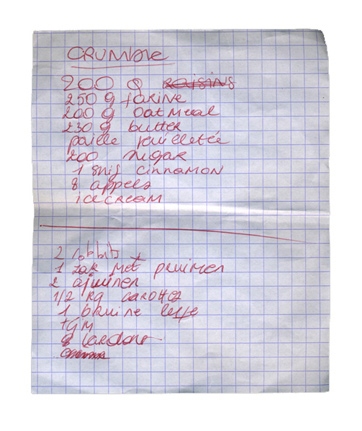 CRUMBLE
200 g raisins
250 g farine
200 g oatmeal
230 g butter
paille feuilletée
200 sugar
1 snif cinnamon
8 appels
icecream
2 rabbits
1 zak met pruimen
2 ajuinen
1/2 kg carottes
1 bruine leffe
tym
lardons